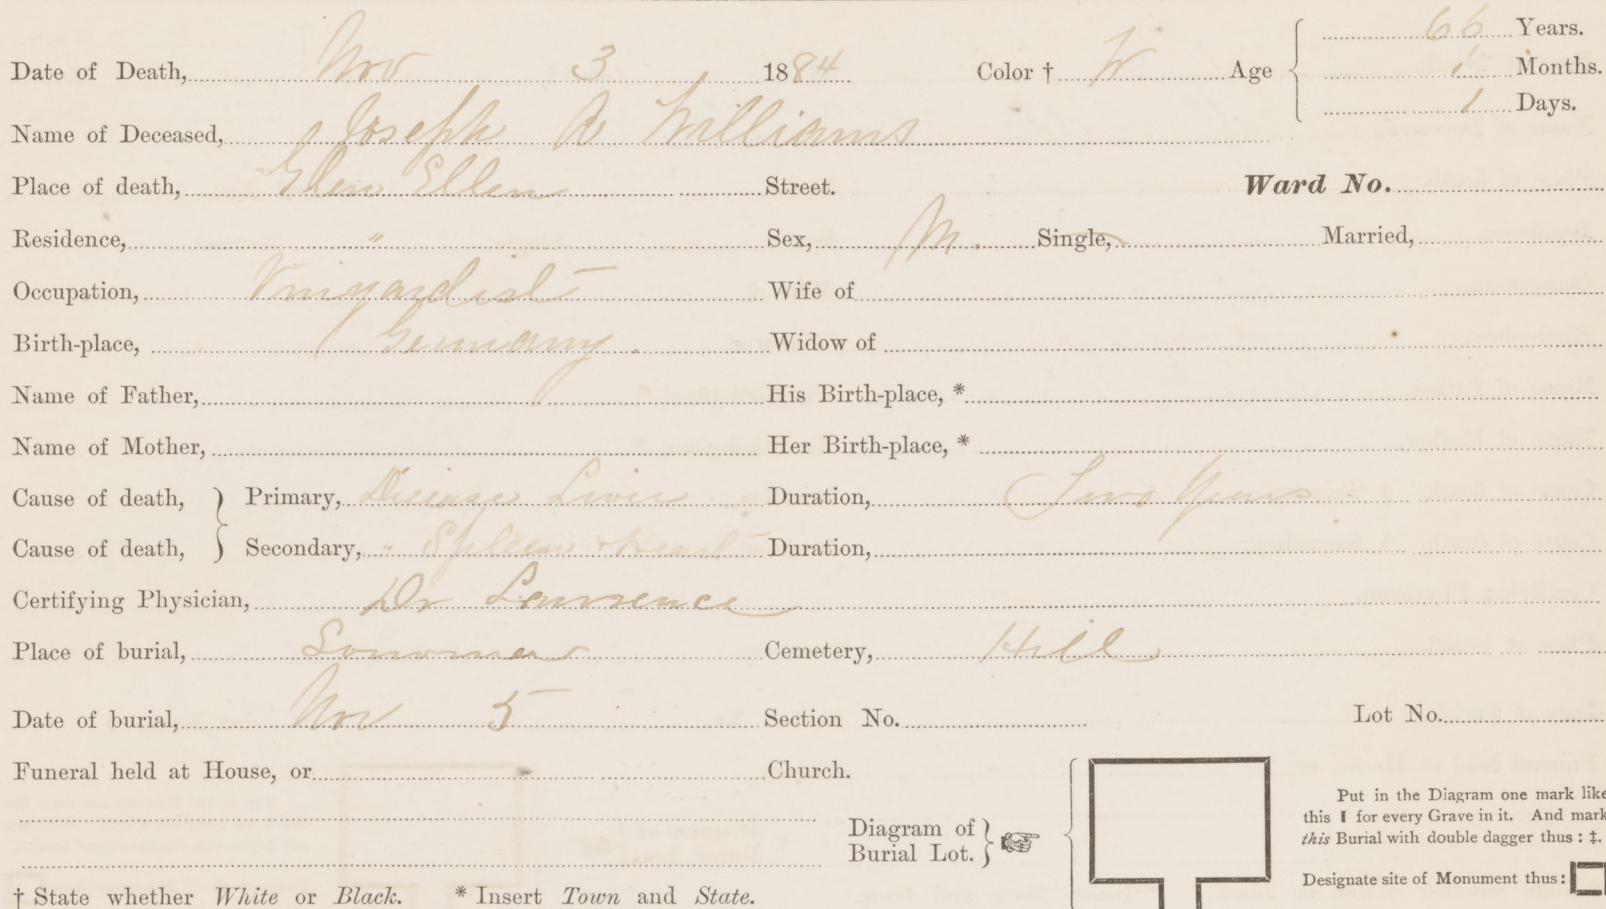 66 Years.
Date of Death, Nov 3 1884 Color † W Age 1 Months.
1 Days.
Name of Deceased, Joseph A Williams
Place of death, Glen Ellen Street. Ward No.
Residence, " Sex, M. Single, Married,
Occupation, Vinyardist Wife of
Birth-place, Germany Widow of
Name of Father, His Birth-place, *
Name of Mother, Her Birth-place, *
Cause of death, Primary, Disease Liver Duration, Two Years
Cause of death, Secondary, " Spleen & Heart Duration,
Certifying Physician, Dr Lawrence
Place of burial, Sonoma Cemetery, Hill
Date of burial, Nov 5 Section No. Lot No.
Funeral held at House, or Church.
Diagram of
Burial Lot.
Put in the Diagram one mark like
this I for every Grave in it. And mark
this Burial with double dagger thus : ‡.
Designate site of Monument thus :
† State whether White or Black. * Insert Town and State.